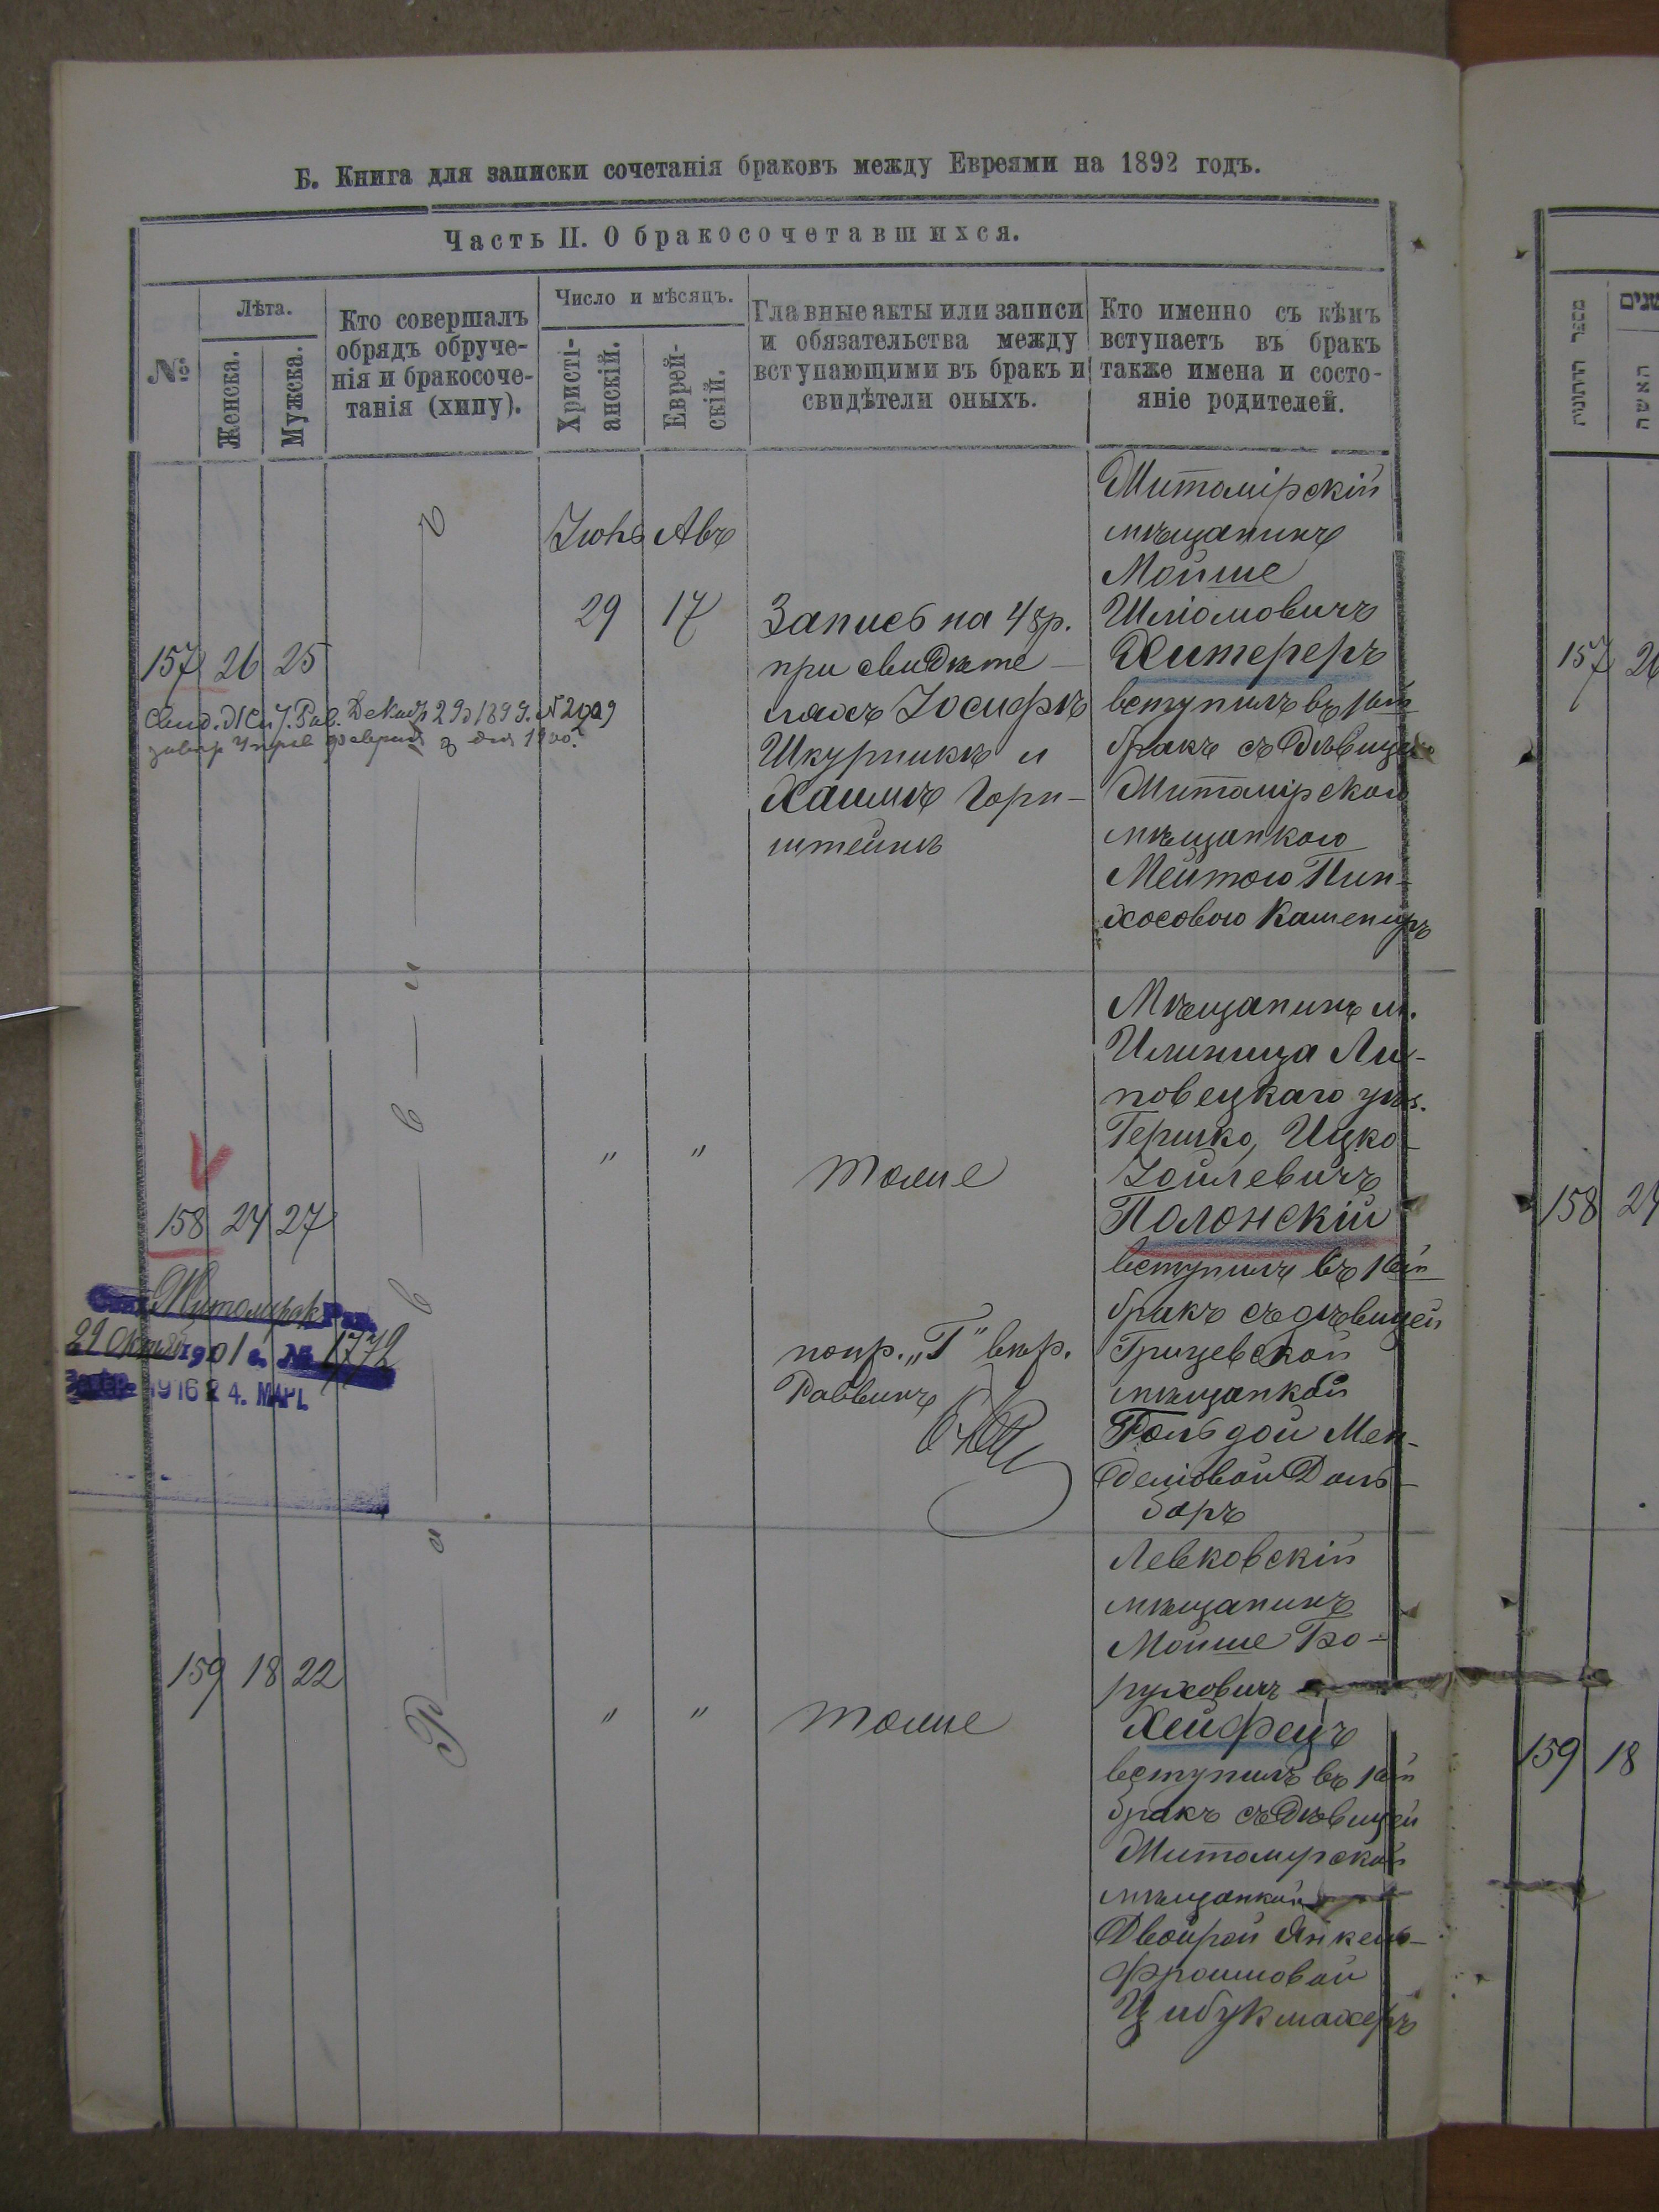 Б. Книга для записки сочетанія браковъ между Евреями на 1892 годъ.
Часть II. О бракосочетавшихся.
№
Лѣта.
Женска.
Мужска.
Кто совершалъ
обрядъ обруче-
нія и бракосоче-
танія (хипу).
Число и мѣсяцъ.
Христі-
анскій.
Еврей-
скій.
Главные акты или записи
и обязательства между
вступающими въ бракъ и
свидѣтели оныхъ.
Кто именно съ кѣмъ
вступаетъ въ бракъ
также имена и состо-
яніе родителей.
Р а в в и
157 26 25
Авъ
29 17
Запись на 48р.
при свидѣте-
ляхъ Іосифѣ
Шкурникѣ и
Хаимѣ Горн-
штейнѣ
Житомірскій
мѣщанинъ
Мойше
Шліомовичъ
Хитереръ
вступилъ въ 1ый
бракъ съ дѣвицею
Житомірскою
мѣщанкою
Мейтою Пин-
хосовою Кашениръ
158 24 27
" "
тоже
попр. „Г" вѣр.
Раввинъ
Мѣщанинъ м.
Илиница Ли-
повецкаго уѣз.
Гершко, Ицко-
Іойлевичъ
Полонскій
вступилъ въ 1ый
бракъ съ дѣвицей
Грицевской
мѣщанкой
Гольдой Мен-
деліовой Доль-
баръ
29 1901 г. № 1772
1916 24. МАР.
159 18 22
" "
тоже
Левковскій
мѣщанинъ
Мойше Бо-
руховичъ
Хейфецъ
вступилъ въ 1ый
бракъ съ дѣвицей
Житомірской
мѣщанкой
Двойрой Янкель-
Фроимовой
Цибукмахеръ
מספר החתונות
שנים
האשה
157 26
158 24
159 18